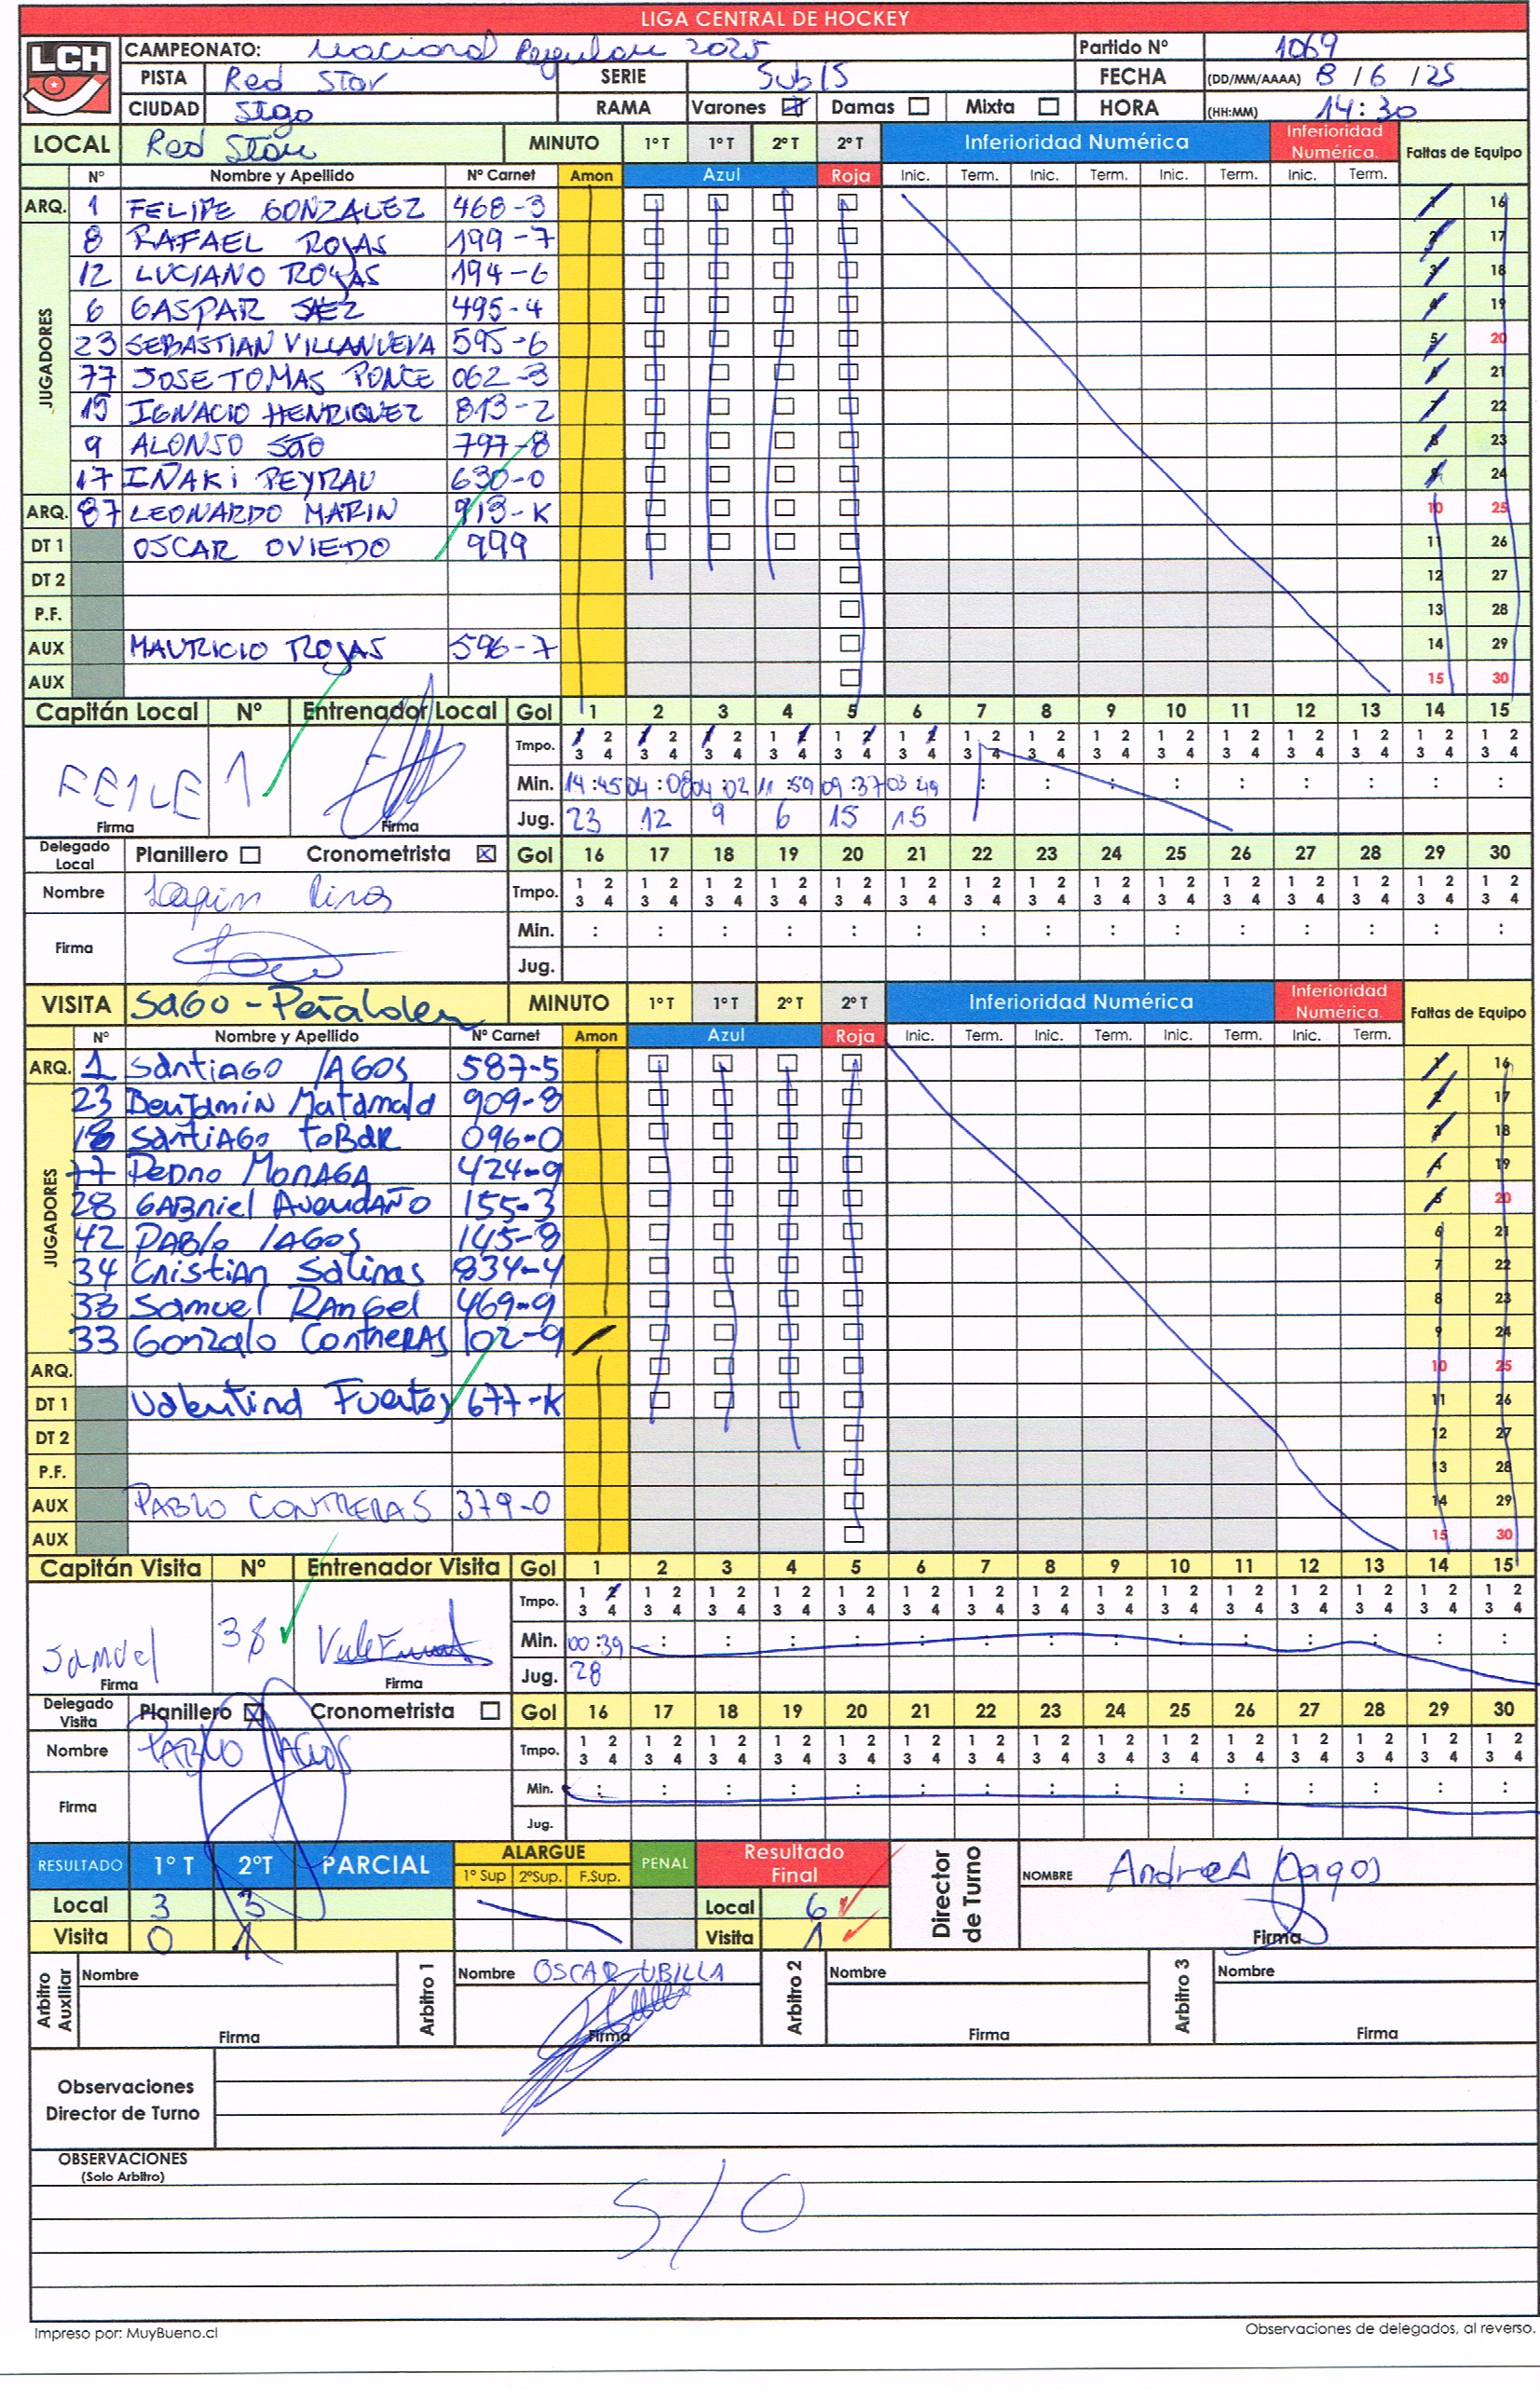 LIGA CENTRAL DE HOCKEY
LCH CAMPEONATO: Nacional Regular 2025 Partido Nº 1069
PISTA Red Star SERIE Sub15 FECHA (DD/MM/AAAA) 8 / 6 / 25
CIUDAD Stgo RAMA Varones Damas Mixta HORA (HH:MM) 14:30
LOCAL Red Star MINUTO 1º T 1º T 2º T 2º T Inferioridad Numérica Inferioridad Numérica. Faltas de Equipo
Nº Nombre y Apellido Nº Carnet Amon Azul Roja Inic. Term. Inic. Term. Inic. Term. Inic. Term.
ARQ. 1 FELIPE GONZALEZ 468-3 1 16
JUGADORES
8 RAFAEL ROJAS 199-7 2 17
12 LUCIANO ROJAS 194-6 3 18
6 GASPAR SAEZ 495-4 4 19
23 SEBASTIAN VILLANUEVA 595-6 5 20
77 JOSE TOMAS PONCE 062-3 6 21
15 IGNACIO HENRIQUEZ 813-2 7 22
9 ALONSO SOTO 797-8 8 23
17 IÑAKI PEYRAU 630-0 9 24
ARQ. 87 LEONARDO MARIN 913-K 10 25
DT 1 OSCAR OVIEDO 999 11 26
DT 2 12 27
P.F. 13 28
AUX MAURICIO ROJAS 596-7 14 29
AUX 15 30
Capitán Local Nº Entrenador Local Gol 1 2 3 4 5 6 7 8 9 10 11 12 13 14 15
Tmpo. 1 2 1 2 1 2 1 2 1 2 1 2 1 2 1 2 1 2 1 2 1 2 1 2 1 2 1 2 1 2
3 4 3 4 3 4 3 4 3 4 3 4 3 4 3 4 3 4 3 4 3 4 3 4 3 4 3 4 3 4
1 Min. 14:45 04:08 04:02 11:59 09:37 03:49 : : : : : : : : :
Firma Firma Jug. 23 12 9 6 15 15
Delegado Local Planillero Cronometrista Gol 16 17 18 19 20 21 22 23 24 25 26 27 28 29 30
Nombre Tmpo. 1 2 1 2 1 2 1 2 1 2 1 2 1 2 1 2 1 2 1 2 1 2 1 2 1 2 1 2 1 2
3 4 3 4 3 4 3 4 3 4 3 4 3 4 3 4 3 4 3 4 3 4 3 4 3 4 3 4 3 4
Firma Min. : : : : : : : : : : : : : : :
Jug.
VISITA SAGO - Peñalolen MINUTO 1º T 1º T 2º T 2º T Inferioridad Numérica Inferioridad Numérica. Faltas de Equipo
Nº Nombre y Apellido Nº Carnet Amon Azul Roja Inic. Term. Inic. Term. Inic. Term. Inic. Term.
ARQ. 1 Santiago LAGOS 587-5 1 16
JUGADORES
23 Benjamin Matamala 909-8 2 17
18 Santiago Tobar 096-0 3 18
77 Pedro Moraga 424-9 4 19
28 Gabriel Avendaño 155-3 5 20
42 Pablo Lagos 145-8 6 21
34 Cristian Salinas 834-4 7 22
38 Samuel Rangel 469-9 8 23
33 Gonzalo Contreras 102-9 9 24
ARQ. 10 25
DT 1 Valentina Fuertes 677-K 11 26
DT 2 12 27
P.F. 13 28
AUX PABLO CONTRERAS 379-0 14 29
AUX 15 30
Capitán Visita Nº Entrenador Visita Gol 1 2 3 4 5 6 7 8 9 10 11 12 13 14 15
Tmpo. 1 2 1 2 1 2 1 2 1 2 1 2 1 2 1 2 1 2 1 2 1 2 1 2 1 2 1 2 1 2
3 4 3 4 3 4 3 4 3 4 3 4 3 4 3 4 3 4 3 4 3 4 3 4 3 4 3 4 3 4
Samuel 38 Min. 00:39 : : : : : : : : : : : : : :
Firma Firma Jug. 28
Delegado Visita Planillero Cronometrista Gol 16 17 18 19 20 21 22 23 24 25 26 27 28 29 30
Nombre PABLO LAGOS Tmpo. 1 2 1 2 1 2 1 2 1 2 1 2 1 2 1 2 1 2 1 2 1 2 1 2 1 2 1 2 1 2
3 4 3 4 3 4 3 4 3 4 3 4 3 4 3 4 3 4 3 4 3 4 3 4 3 4 3 4 3 4
Firma Min. : : : : : : : : : : : : : : :
Jug.
RESULTADO 1º T 2ºT PARCIAL ALARGUE PENAL Resultado Final Director de Turno NOMBRE Andrea Lagos
1º Sup 2ºSup. F.Sup.
Local 3 3 Local 6
Visita 0 1 Visita 1 Firma
Arbitro Auxiliar Nombre Arbitro 1 Nombre OSCAR UBILLA Arbitro 2 Nombre Arbitro 3 Nombre
Firma Firma Firma Firma
Observaciones
Director de Turno
OBSERVACIONES
(Solo Arbitro)
S/O
Impreso por: MuyBueno.cl Observaciones de delegados, al reverso.